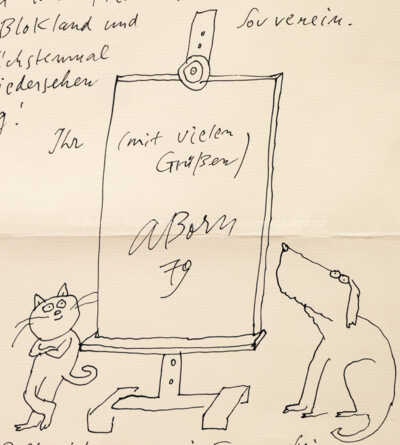 Blokland und Souverein.
chstenmal
iedersehen
g!
Ihr (mit vielen
Grüßen)
ABorn
79